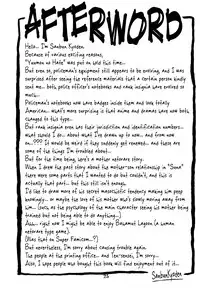 AFTERWORD
Hello... I'm Sanbun Kyoden.
Because of various exciting reasons,
"Youman wa Hafe" was put on hold this time...
But even so, policeman's equipment still appears to be evolving, and I was
surprised after seeing the reference materials that a certain person kindly
sent me... both police officer's notebooks and rank insignia were entirely so
much...
Policeman's notebooks now have badges inside them and look totally
American... what's more surprising is that anime and dramas have now both
changed to this type...
But rank insignia even has their jurisdiction and identification numbers...
what should I do... about what I've drawn up to now... and from now
on...??? It would be weird if they suddenly get renewed... and these are
some of the things I'm troubled about...
But for the time being, here's a mother veterans story.
When I drew the past story about the mother-son relationship in "Soma"
there were some parts that I wanted to do but couldn't, and this is
actually that part... but this still isn't enough.
I'd like to draw more of his secretly masochistic tendency making him peep
knowingly... or maybe the love of his mother who's slowly moving away from
him... (acts as the psychology of the main character seeing his mother being
trained but not being able to do anything...)
Ahh... right now, I may be able to enjoy Bahamut Lagoon (a human
veterans type game).
(Was that on Super Famicom...?)
But nevertheless, I'm sorry about causing trouble again.
The people at the printing office... and Tes-sensei, I'm sorry...
Also, I hope people who bought this book will find enjoyment out of it...
Sanbun Kyoden
25